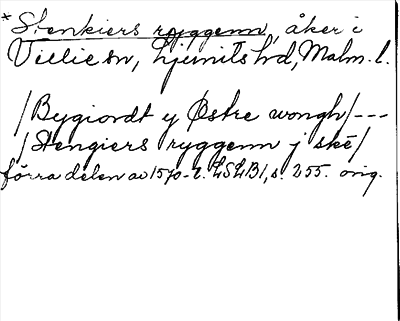 * Stenkiers ryggenn, åker i
Vellie sn, Ljunits hd, Malm. l.
/Bygiordt y Østre wongh/---
/Stengiers ryggenn j skē/
förra delen av 1570-t. LSLB1, s. 255. orig.